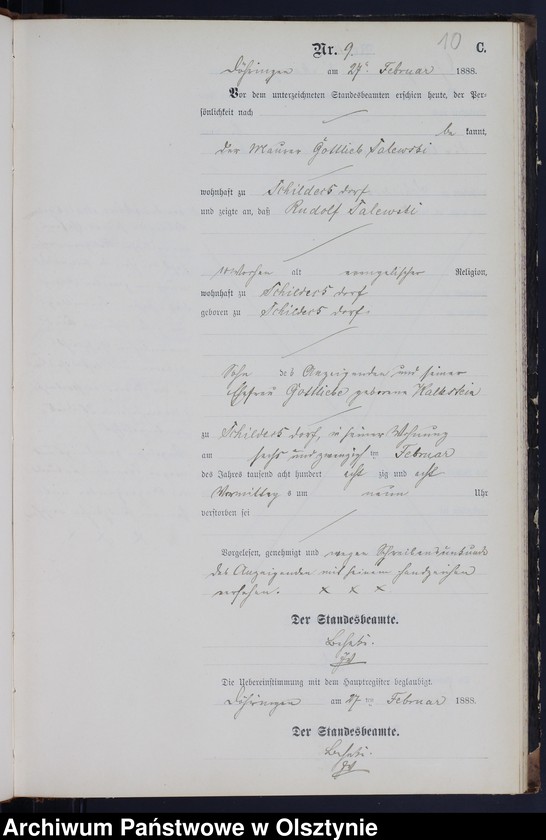 10
Nr. 9. C.
Döhringen am 27ten Februar 1888.
Vor dem unterzeichneten Standesbeamten erschien heute, der Per-
sönlichkeit nach
be kannt,
der Maurer Gottlieb Salewski
wohnhaft zu Schildersdorf
und zeigte an, daß Rudolf Salewski
10 Wochen alt evangelischer Religion,
wohnhaft zu Schildersdorf
geboren zu Schildersdorf,
Sohn des Anzeigenden und seiner
Ehefrau Gottliebe geborene Kalkstein
zu Schildersdorf, in seiner Wohnung
am sechs und zwanzigsten Februar
des Jahres tausend acht hundert acht zig und acht
Vormittags um neun Uhr
verstorben sei
Vorgelesen, genehmigt und wegen Schreibensunkunde
des Anzeigenden mit seinem Handzeichen
versehen. x x x
Der Standesbeamte.
Die Uebereinstimmung mit dem Hauptregister beglaubigt.
Döhringen am 27ten Februar 1888.
Der Standesbeamte.
Archiwum Państwowe w Olsztynie